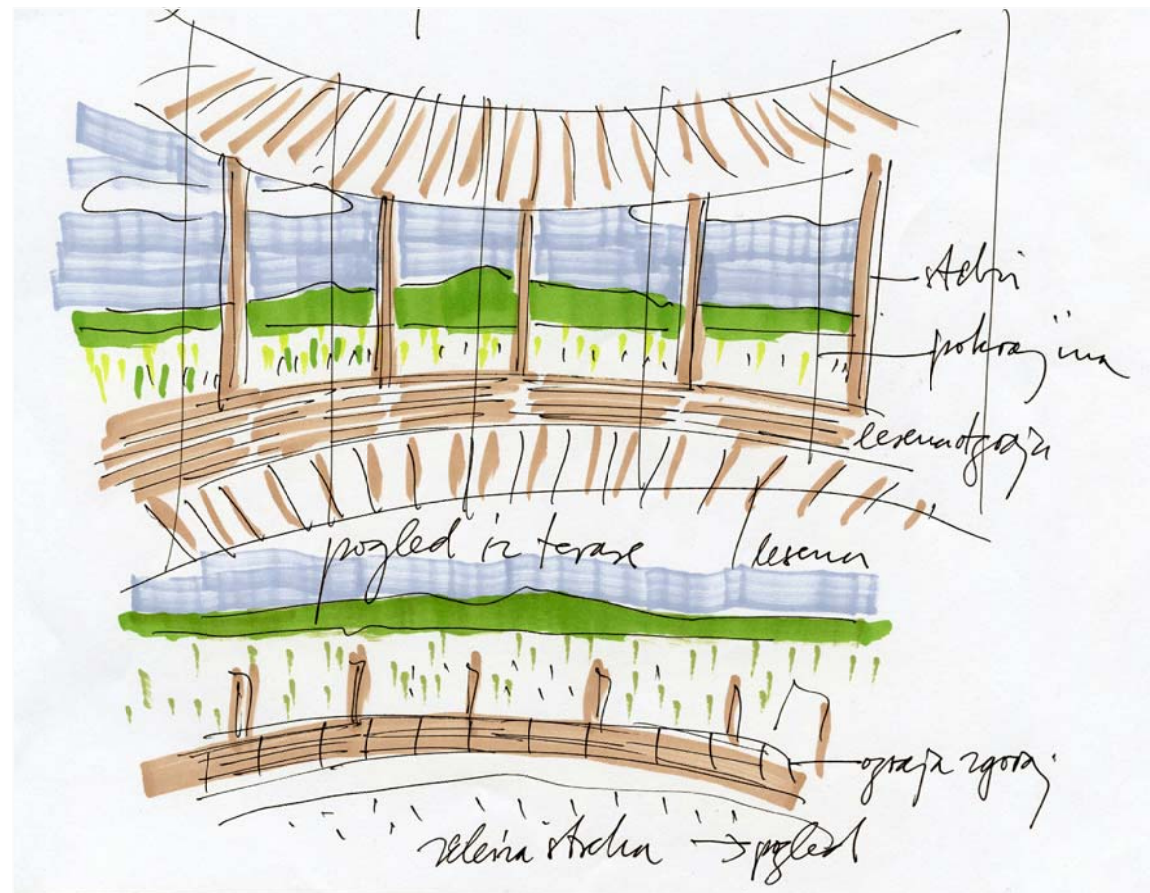 stebri
pokrajina
lesena ograja
pogled iz terase
lesena
ograja zgoraj
zelena streha → pogled